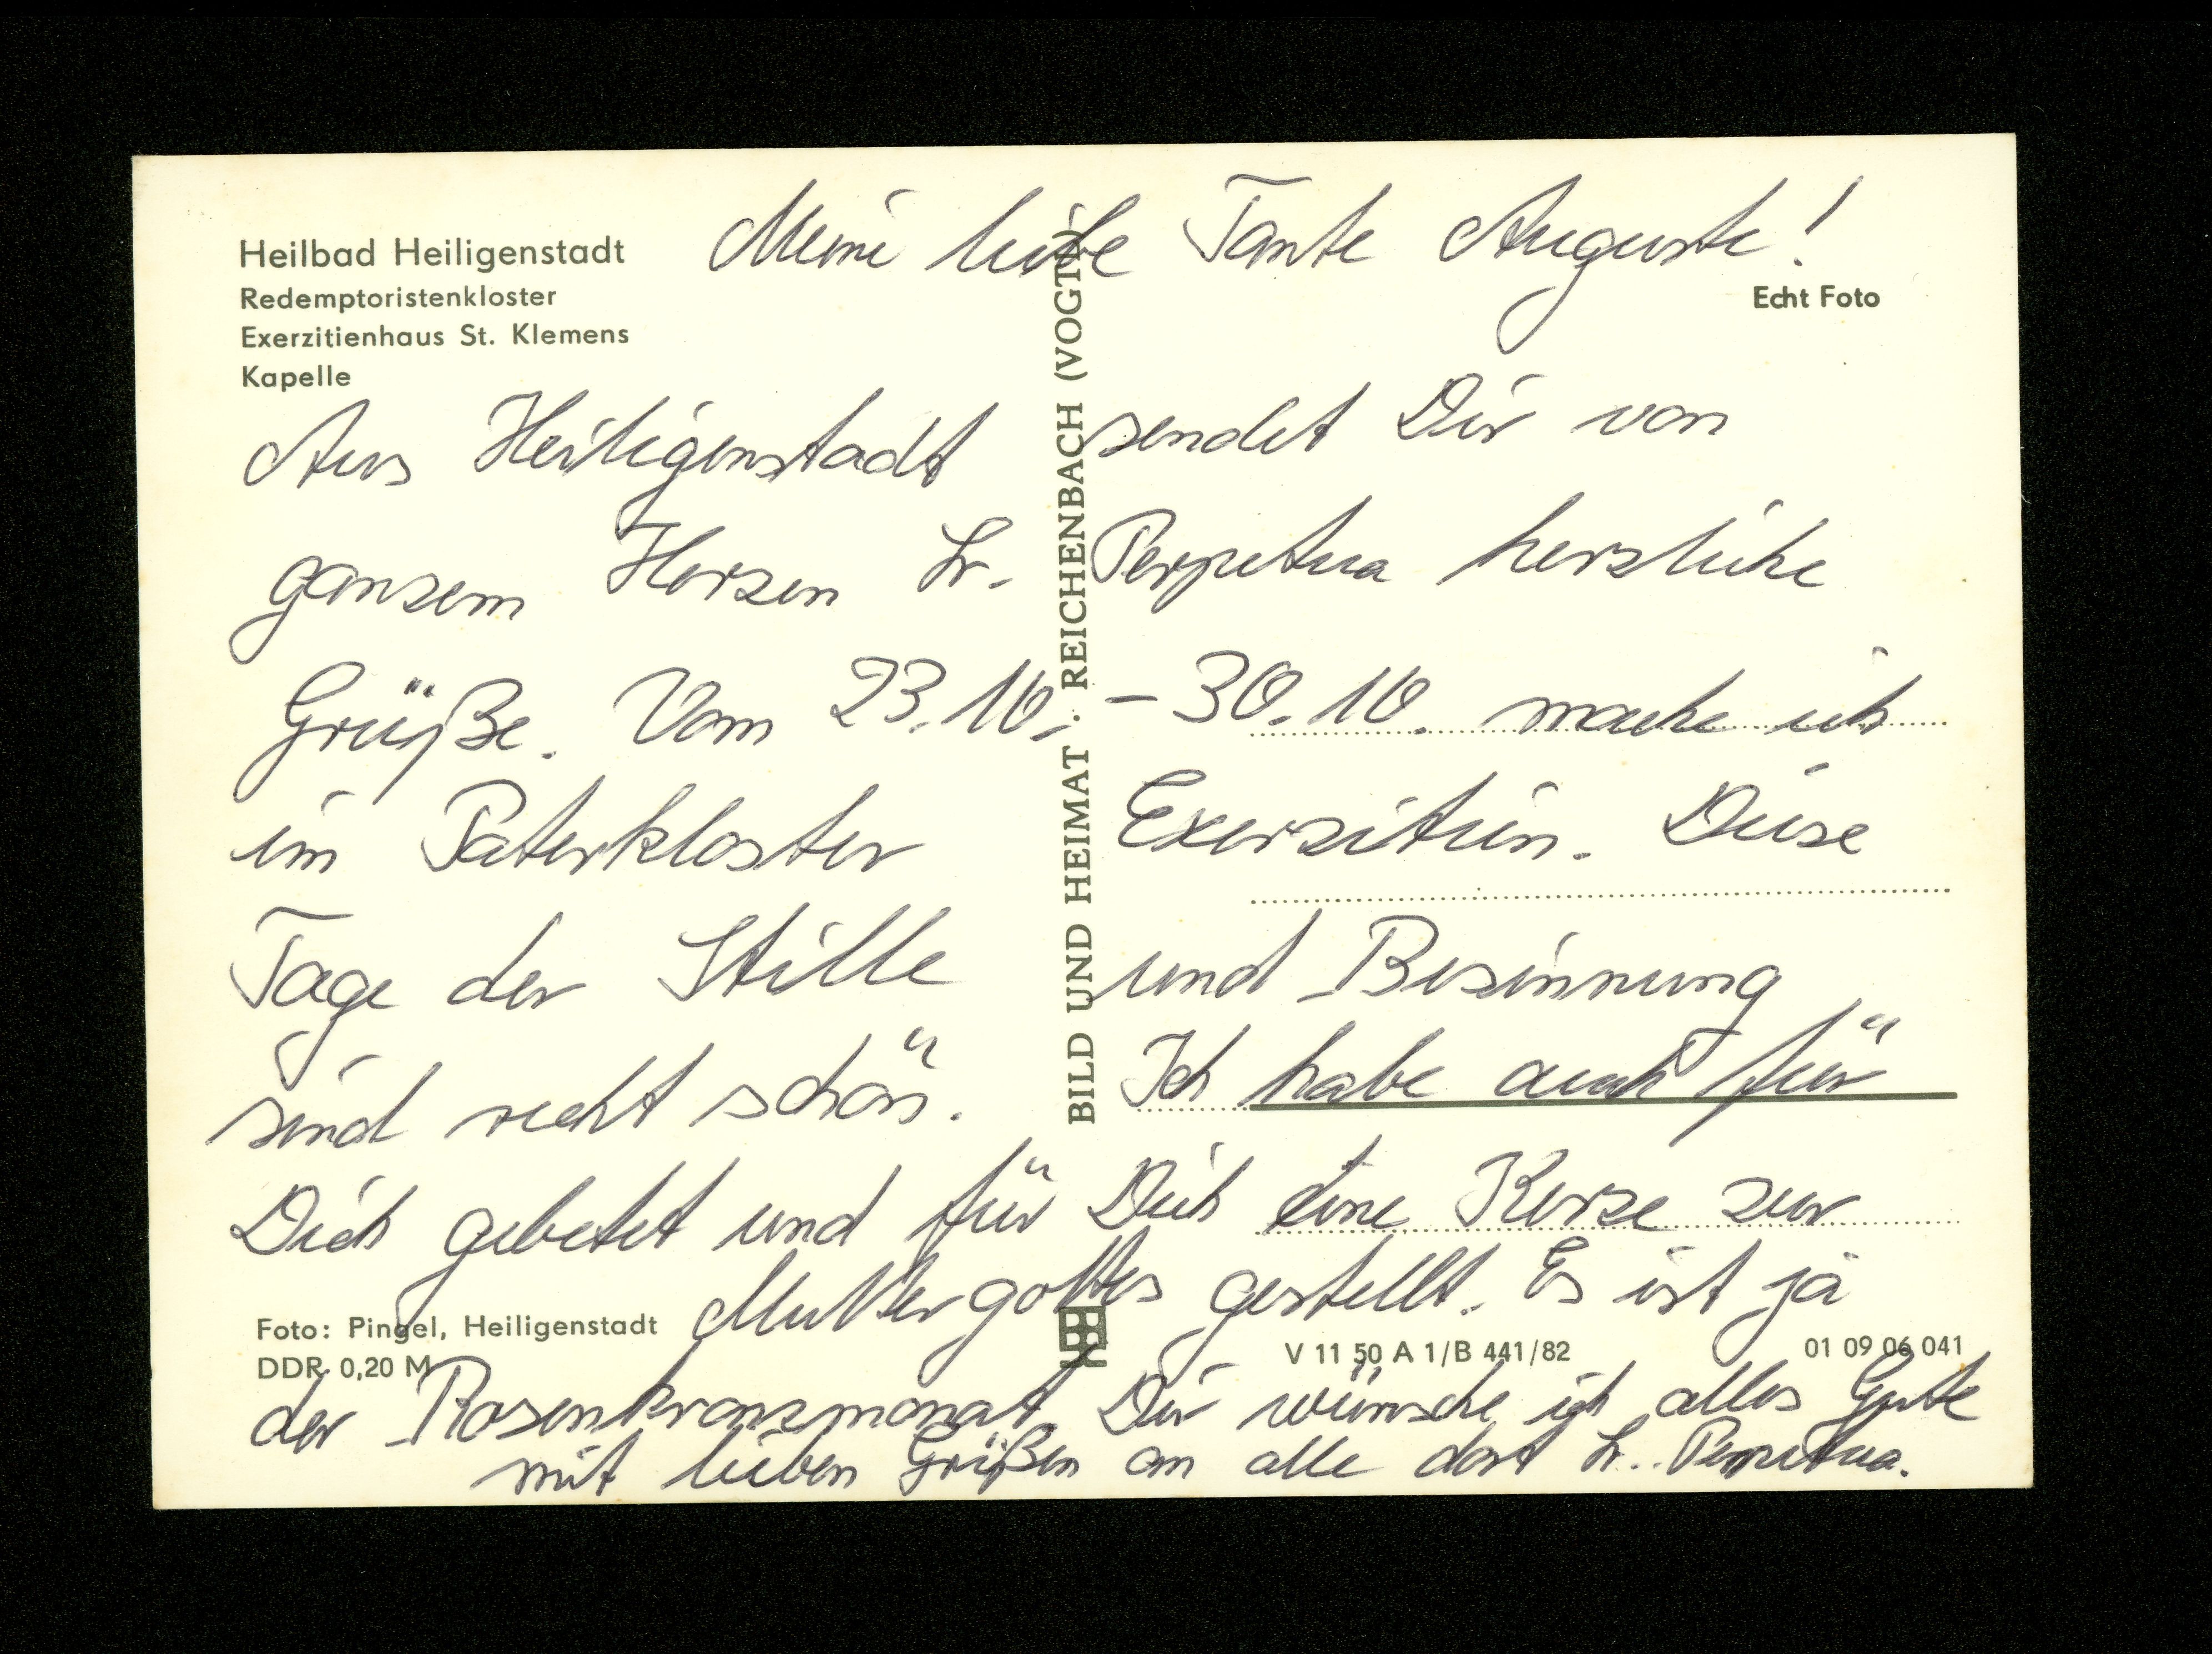 Heilbad Heiligenstadt
Redemptoristenkloster
Exerzitienhaus St. Klemens
Kapelle
Echt Foto
BILD UND HEIMAT REICHENBACH (VOGTL)
Meine liebe Tante Auguste!
Aus Heiligenstadt sendet Dir von
ganzem Herzen Sr. Perpetua herzliche
Grüße. Vom 23.10. - 30.10. mache ich
im Paterkloster Exerzitien. Diese
Tage der Stille und Besinnung
sind recht schön. Ich habe auch für
Dich gebetet und für Dich eine Kerze zur
Muttergottes gestellt. Es ist ja
der Rosenkranzmonat. Dir wünsche ich alles Gute
mit lieben Grüßen an alle dort Sr. Perpetua.
Foto: Pingel, Heiligenstadt
DDR 0,20 M
V 11 50 A 1/B 441/82
01 09 06 041